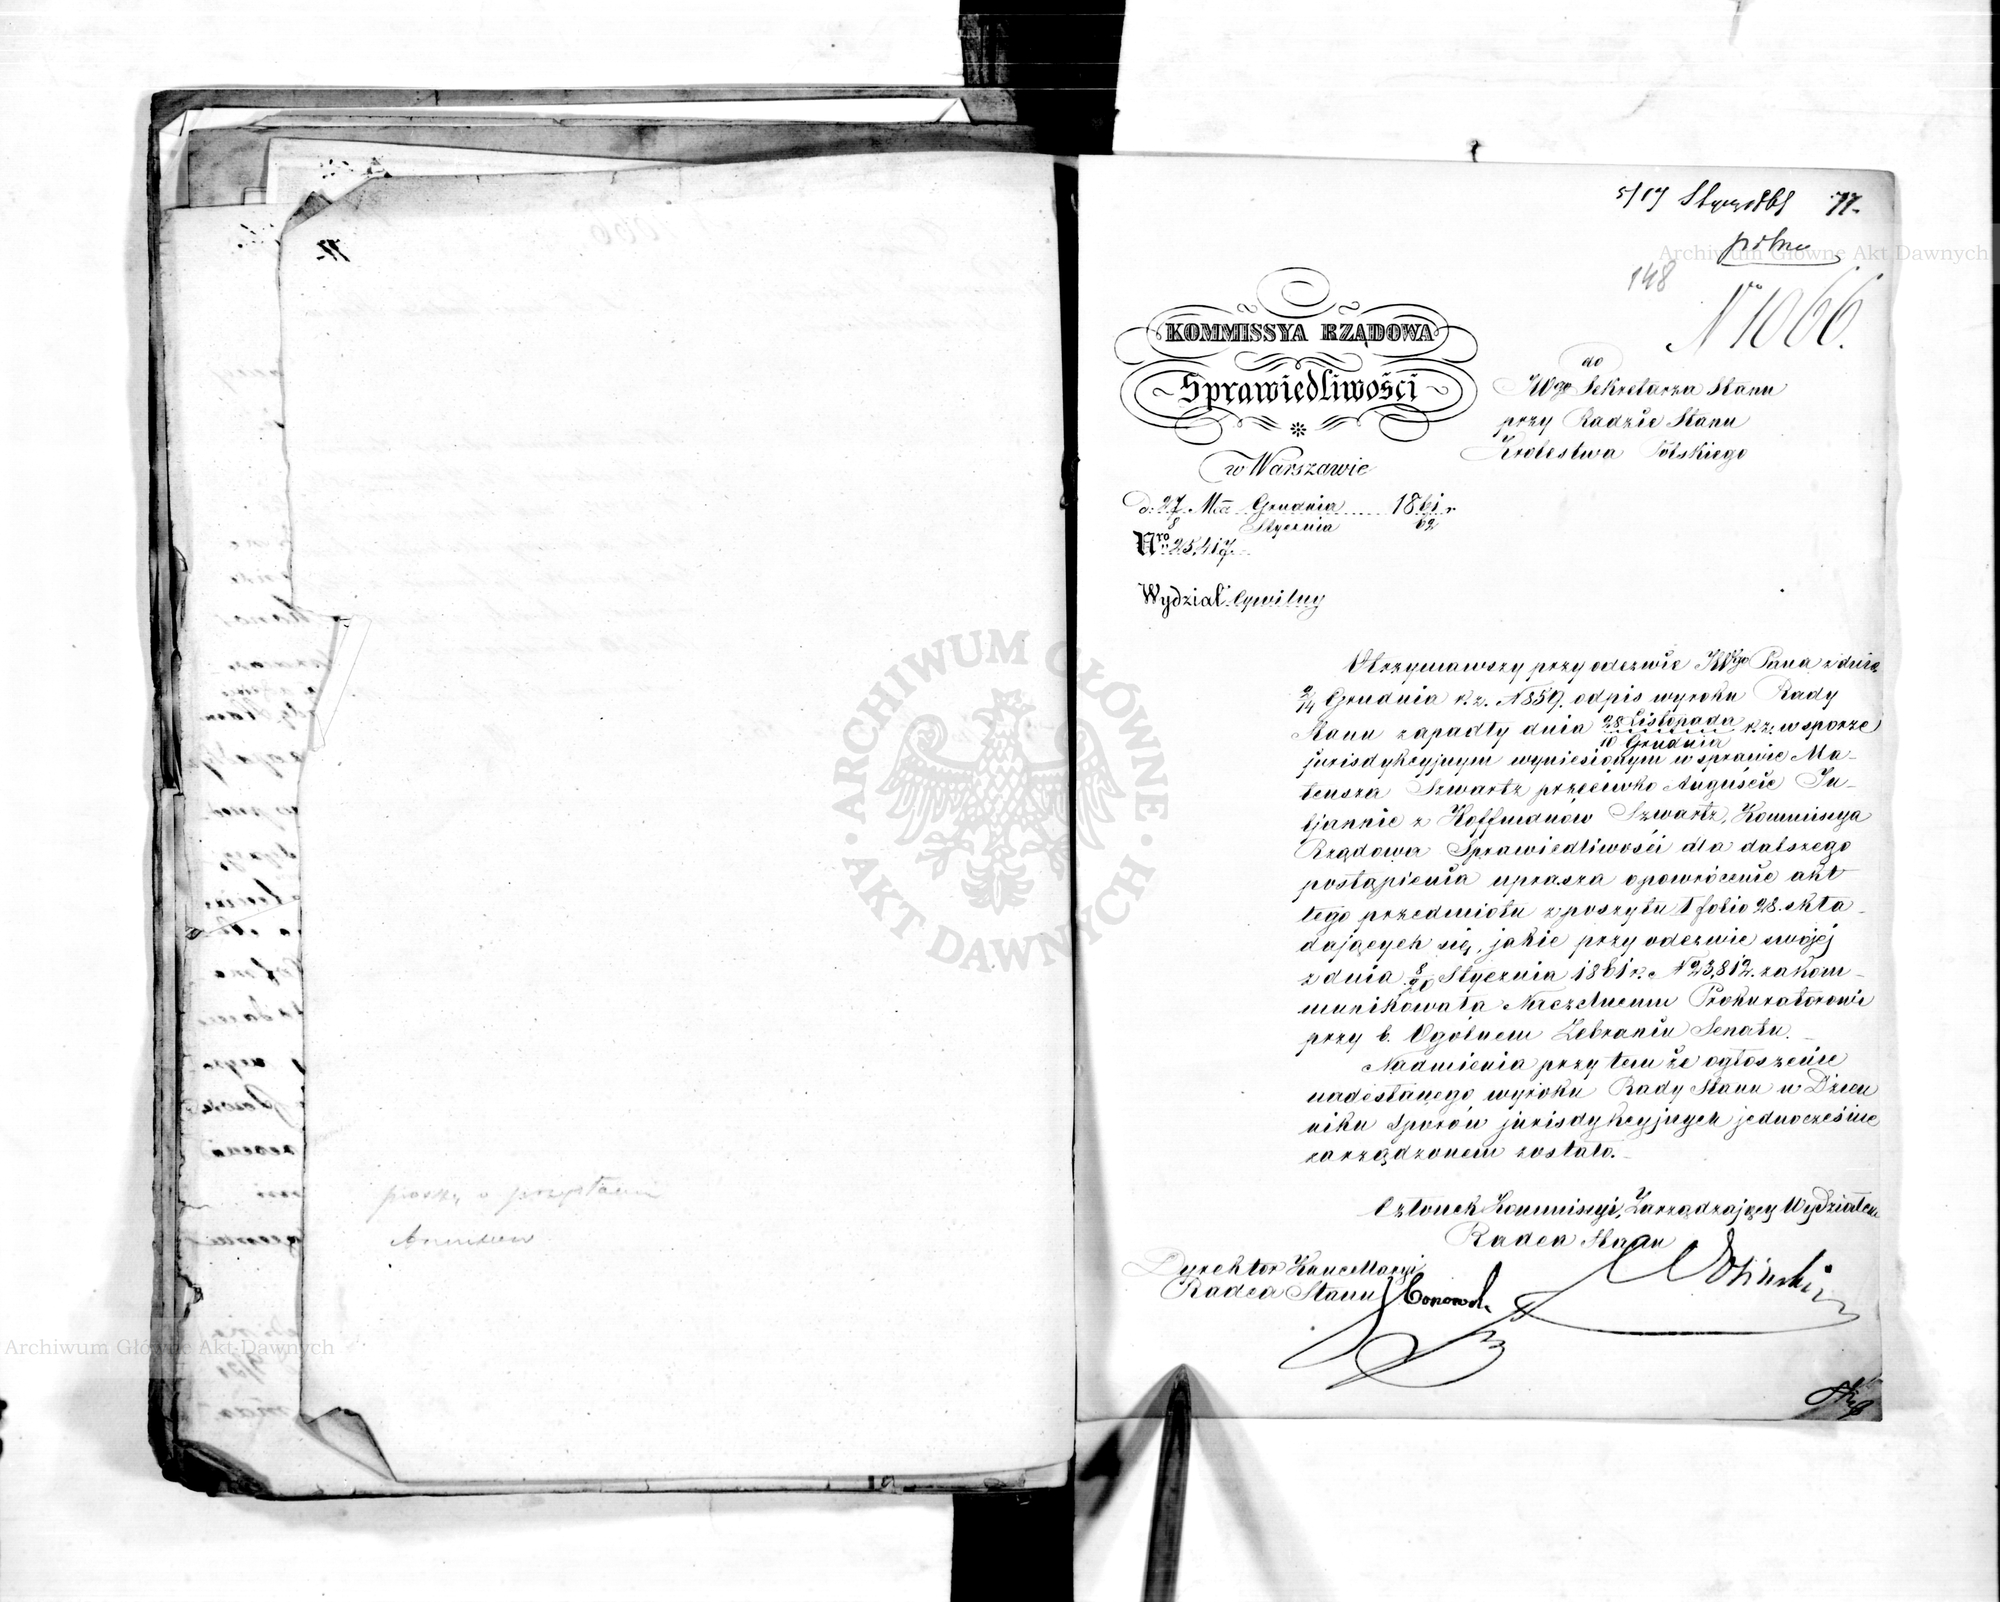 proszę o przysłanie
5/17 Stycz 1861 77.
pilne
148
N 1066.
KOMMISSYA RZĄDOWA
Sprawiedliwości
w Warszawie
d. 27 Mca Grudnia 1861 r.
8 Stycznia 62
Nro 25,417.
Wydział Cywilny
do
JWgo Sekretarza Stanu
przy Radzie Stanu
Królestwa Polskiego
Otrzymawszy przy odezwie JWgo Pana z dnia
2/14 Grudnia r.z. N 859. odpis wyroku Rady
Stanu zapadły dnia 28 Listopada r.z. w sporze
10 Grudnia
jurisdykcyjnym wyniesionym w sprawie Ma-
teusza Szwartz przeciwko Auguście Ju-
ljannie z Hoffmanów Szwartz, Kommissya
Rządowa Sprawiedliwości dla dalszego
postąpienia uprasza o powrócenie akt
tego przedmiotu z poszytu 1 folio 28. skła-
dających się, jakie przy odezwie swojej
z dnia 8/20 Stycznia 1861 r. N 23,812. zakom-
munikowała Naczelnemu Prokuratorowi
przy b. Ogólnem Zebraniu Senatu.
Nadmienia przytem że ogłoszenie
nadesłanego wyroku Rady Stanu w Dzien
niku Sporów jurisdykcyjnych jednocześnie
zarządzonem zostało.
Członek Kommissyi, Zarządzający Wydziałem
Radca Stanu
Dyrektor Kancellaryi
Radca Stanu
ARCHIWUM GŁÓWNE
AKT DAWNYCH
Archiwum Główne Akt Dawnych
Archiwum Główne Akt Dawnych